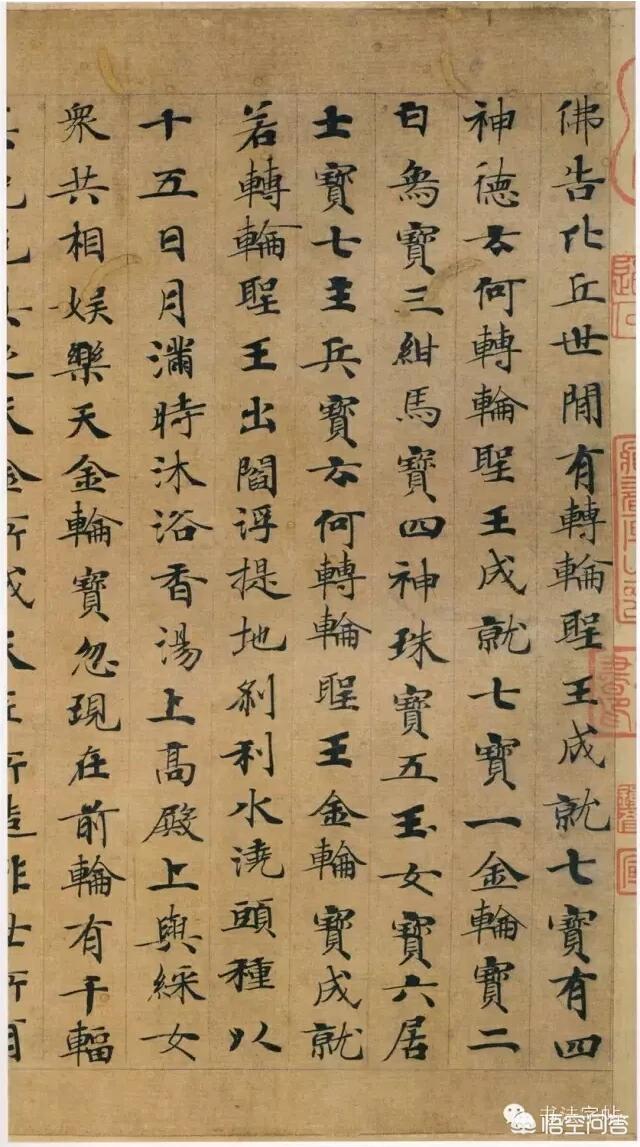 佛告比丘世間有轉輪聖王成就七寶有四
神德云何轉輪聖王成就七寶一金輪寶二
白象寶三紺馬寶四神珠寶五玉女寶六居
士寶七主兵寶云何轉輪聖王金輪寶成就
若轉輪聖王出閻浮提地剎利水澆頭種以
十五日月滿時沐浴香湯上高殿上與綵女
衆共相娛樂天金輪寶忽現在前輪有千輻
光色具足天金所成天匠所造非世所有
书法字帖
悟空问答